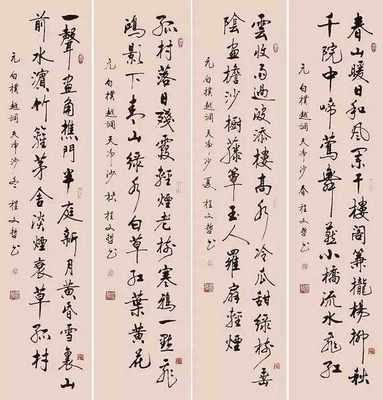 春山暖日和風闌干樓閣簾櫳楊柳秋
千院中啼鶯舞燕小橋流水飛紅
元白樸越調天淨沙春桂文哲書
雲收雨過波添樓高水冷瓜甜綠樹垂
陰畫檐沙櫥藤簟玉人羅扇輕煙
元白樸越調天淨沙夏桂文哲書
孤村落日殘霞輕煙老樹寒鴉一點飛
鴻影下青山綠水白草紅葉黃花
元白樸越調天淨沙秋桂文哲書
一聲畫角樵門半庭新月黃昏雪裏山
前水濱竹籬茅舍淡煙衰草孤村
元白樸越調天淨沙冬桂文哲書